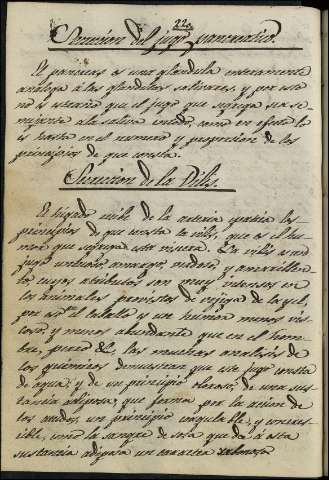 22.
Secrecion del jugo pancreatico.
El pancreas es una glandula enteramente
analoga à las glandulas salivares, y por esto
no es estraño que el jugo que segrega sea se-
mejante à la saliva como en efecto lo
es hasta en el numero y proporcion de los
principios de que consta.
Secrecion de la Bilis.
El higado recibe de la arteria epatica los
principios de que consta la vilis, que es el hu-
mor que segrega esta viscera. La vilis es un
jugo untuoso, amargo, viscoso y amarillen-
to cuyos atributos son muy intensos en
los animales provistos de vejiga de la yel,
por eso el caballo es un humor menos vis-
coso, y menos abundante que en el hom-
bre, perro &c, los muchos analisis de
los quimicos demuestran que este jugo consta
de agua, y de un principio oloroso, de una sus-
tancia adiposa, que forma por la union de
los acidos, un principio coagulable, y concres-
cible, como la sangre de sosa que da à esta
sustancia adiposa un caracter